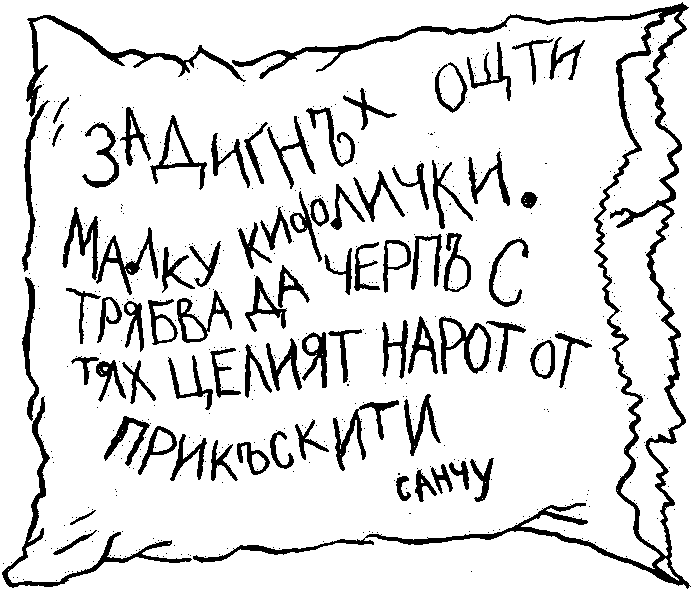 ЗАДИГНЪХ ОЩТИ
МАЛКУ КИФЛИЧКИ.
ТРЯБВА ДА ЧЕРПЪ С
ТЯХ ЦЕЛИЯТ НАРОТ ОТ
ПРИКЪСКИТИ
САНЧУ